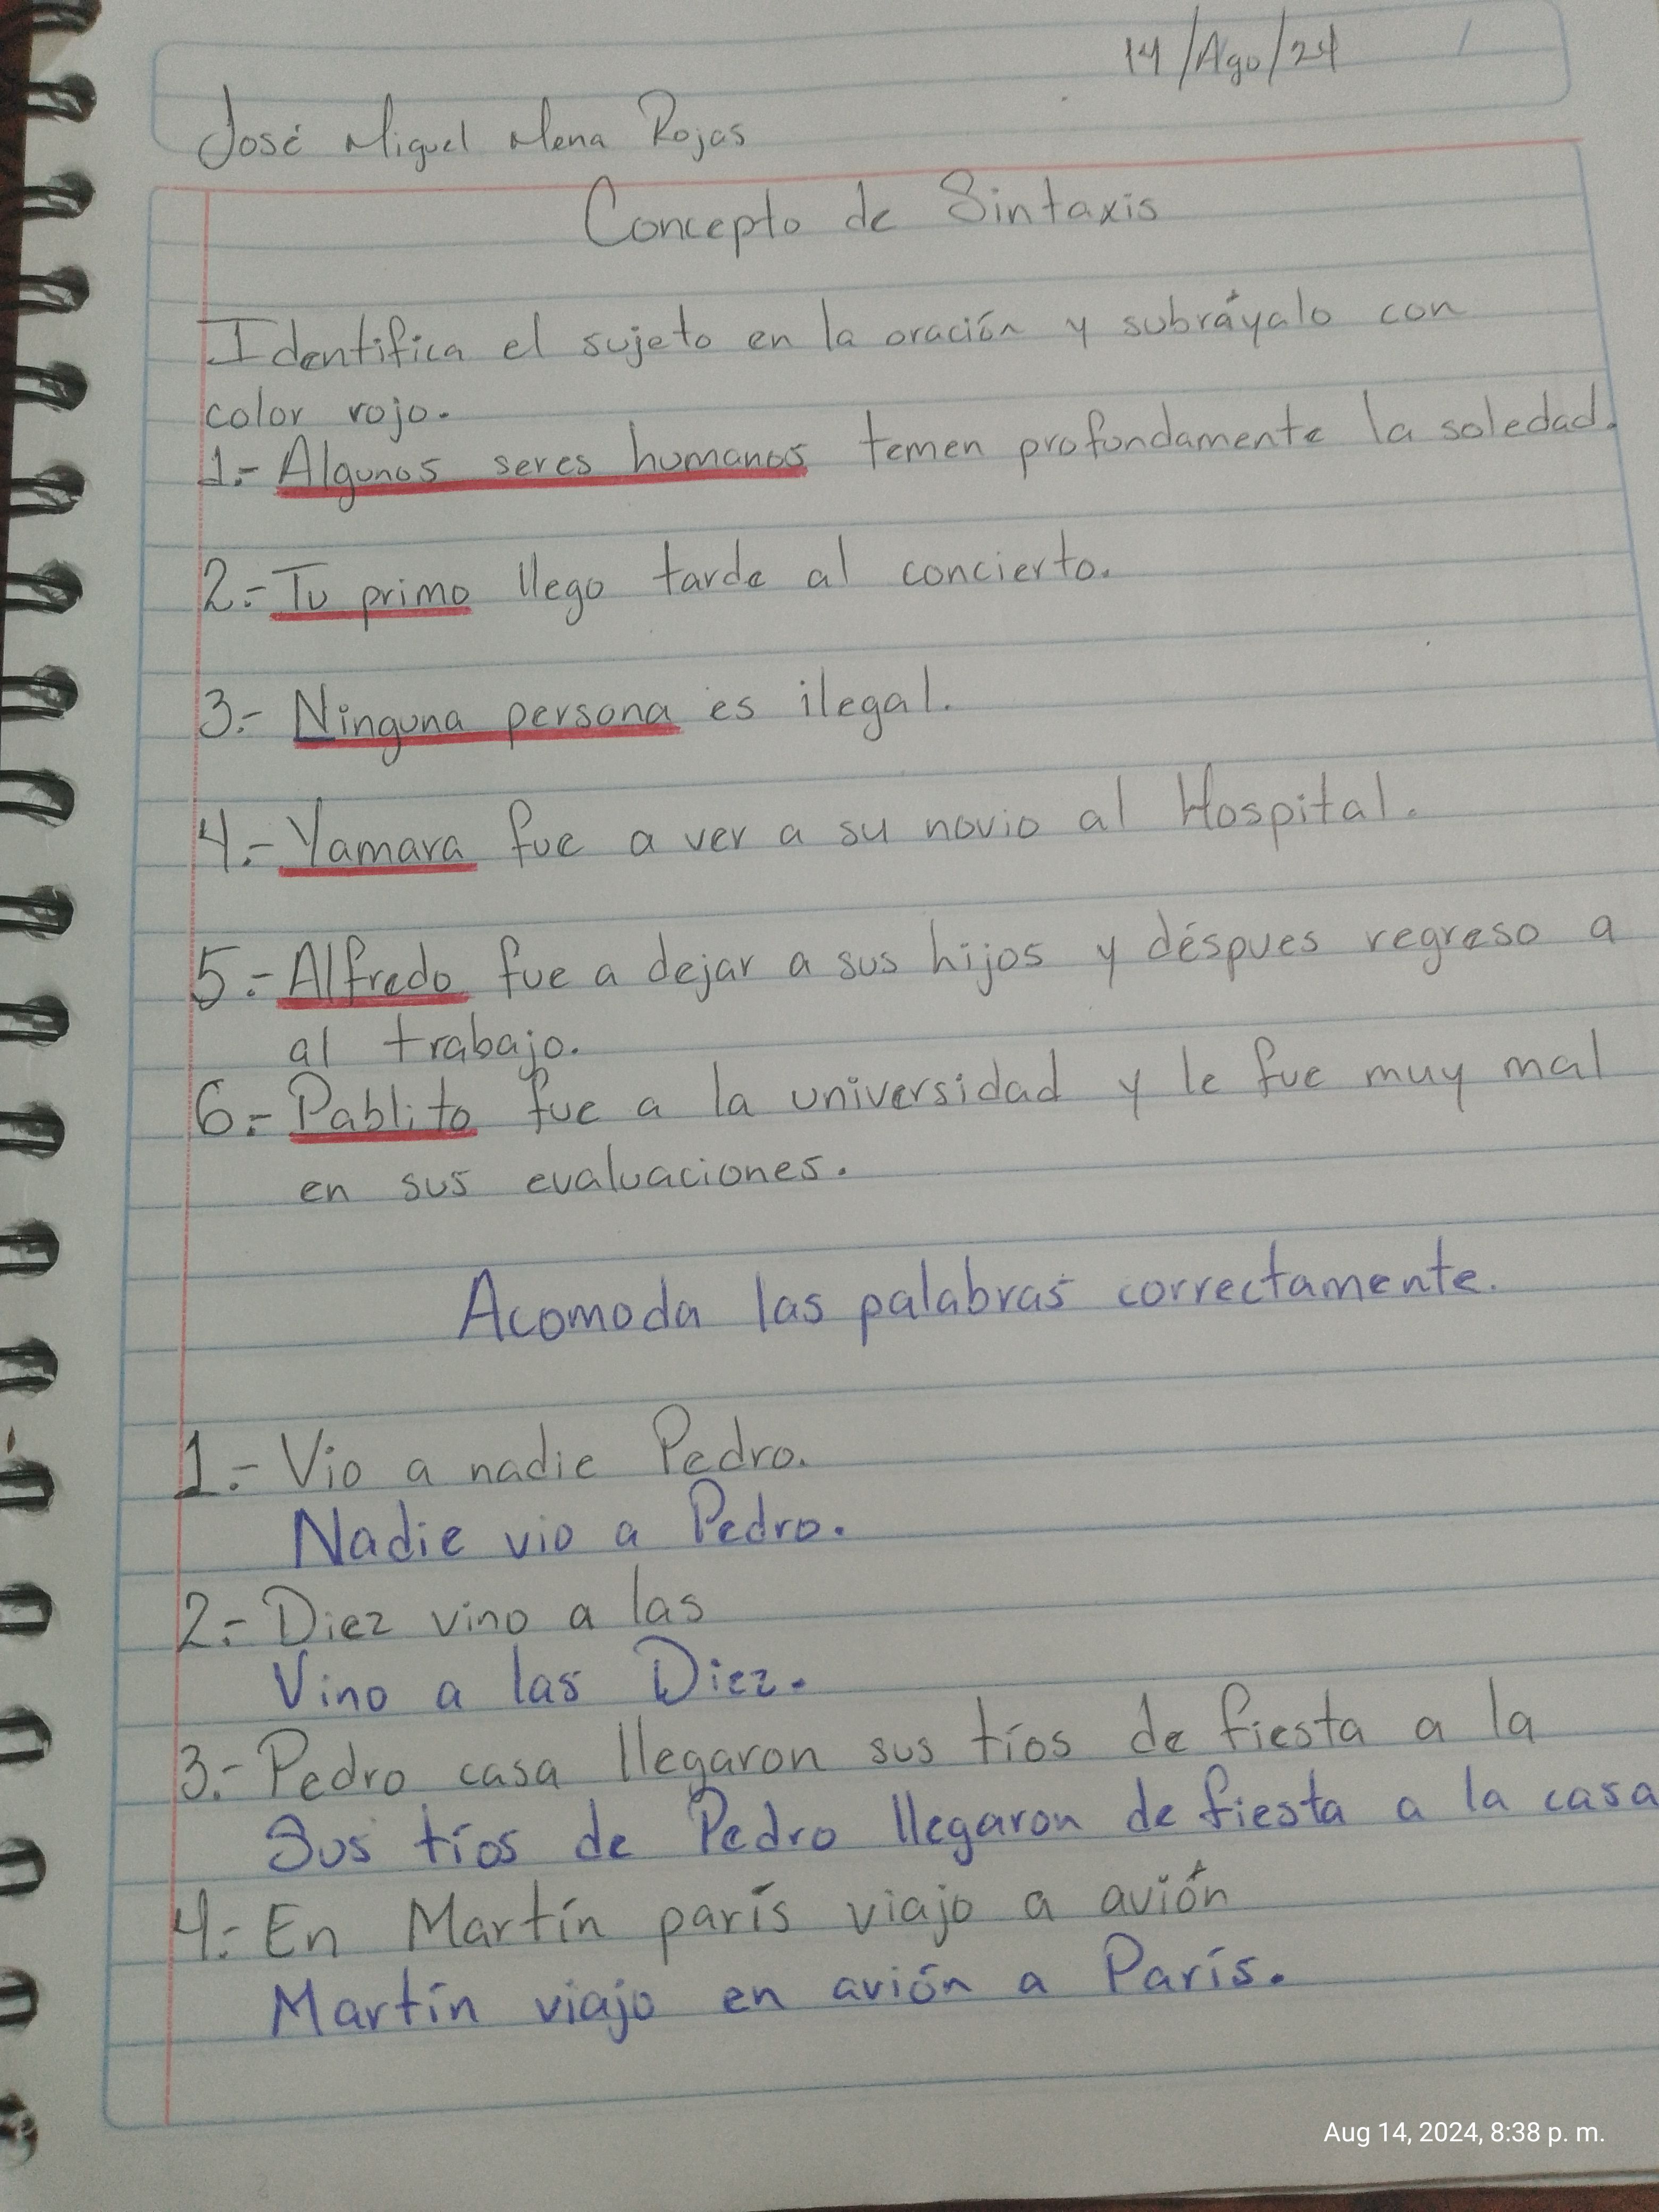 14/Ago/24
José Miguel Mena Rojas
Concepto de Sintaxis
Identifica el sujeto en la oración y subráyalo con
color rojo.
1.- Algunos seres humanos temen profundamente la soledad.
2.- Tu primo llego tarde al concierto.
3.- Ninguna persona es ilegal.
4.- Yamara fue a ver a su novio al Hospital.
5.- Alfredo fue a dejar a sus hijos y déspues regreso a
al trabajo.
6.- Pablito fue a la universidad y le fue muy mal
en sus evaluaciones.
Acomoda las palabras correctamente.
1.- Vio a nadie Pedro.
Nadie vio a Pedro.
2.- Diez vino a las
Vino a las Diez.
3.- Pedro casa llegaron sus tíos de fiesta a la
Sus tíos de Pedro llegaron de fiesta a la casa
4.- En Martín parís viajo a avión
Martín viajo en avión a París.
Aug 14, 2024, 8:38 p. m.